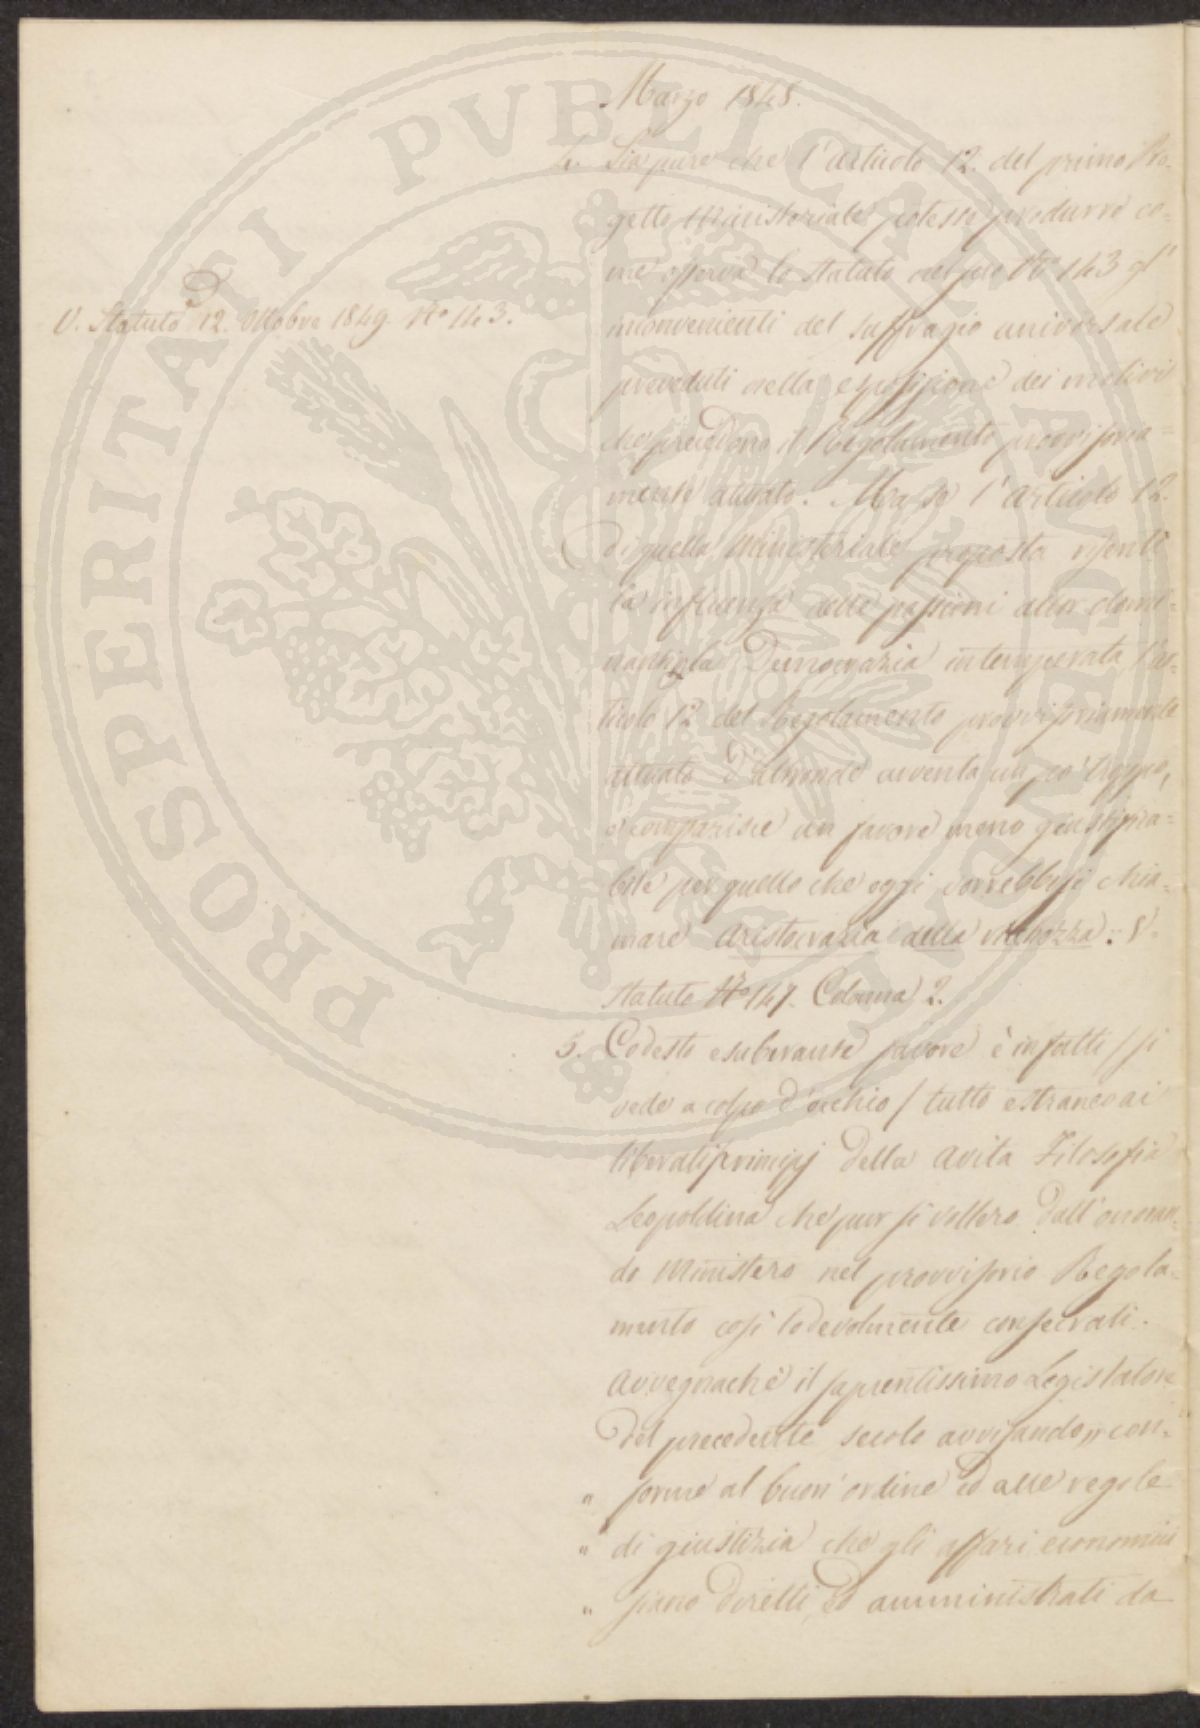 Marzo 1848.
4. Sia pure che l'articolo 12. del primo Pro-
getto Ministeriale potesse produrre co-
me osserva lo Statuto nel suo No 143 gl'
inconvenienti del suffragio universale
preveduti nella esposizione dei motivi
che precedono il Regolamento provvisoria=
mente attivato. Ma se l'articolo 12.
di quella Ministeriale proposta risentì
la influenza delle passioni allor domi-
nanti, la Democrazia intemperata l'ar-
ticolo 12 del Regolamento provvisoriamente
attivato d'altronde avventa un po' troppo,
e comparisce un favore meno giustifica=
bile per quello che oggi vorrebbesi chia=
mare aristocrazia della ricchezza: V.
Statuto No 147. Colonna 2.
V. Statuto 12. Ottobre 1849. No 143.
5. Codesto esuberante favore è infatti / si
vede a colpo d'occhio / tutto estraneo ai
liberali principj della avita Filosofia
Leopoldina che pur si vollero dall'onoran-
do Ministero nel provvisorio Regola=
mento così lodevolmente consecrati.
Avvegnachè il sapientissimo Legislatore
del precedente secolo avvisando „ con-
„ forme al buon'ordine ed alle regole
„ di giustizia che gli affari economici
„ siano diretti, ed amministrati da
PROSPERITATI PVBLICAE AVGENDAE